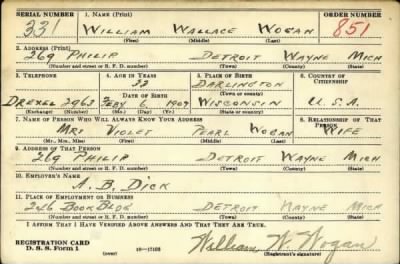 SERIAL NUMBER 1. NAME (Print) ORDER NUMBER
331 WILLIAM WALLACE WOGAN 851
(First) (Middle) (Last)
2. ADDRESS (Print)
269 PHILIP DETROIT WAYNE MICH
(Number and street or R. F. D. number) (Town) (County) (State)
3. TELEPHONE 4. AGE IN YEARS 5. PLACE OF BIRTH 6. COUNTRY OF CITIZENSHIP
33 DARLINGTON
DATE OF BIRTH (Town or county)
DREXEL 2963 FEBY 6 1907 WISCONSIN U.S.A.
(Exchange) (Number) (Mo.) (Day) (Yr.) (State or country)
7. NAME OF PERSON WHO WILL ALWAYS KNOW YOUR ADDRESS 8. RELATIONSHIP OF THAT PERSON
MRS VIOLET PEARL WOGAN WIFE
(Mr., Mrs., Miss) (First) (Middle) (Last)
9. ADDRESS OF THAT PERSON
269 PHILIP DETROIT WAYNE MICH
(Number and street or R. F. D. number) (Town) (County) (State)
10. EMPLOYER'S NAME
A. B. DICK
11. PLACE OF EMPLOYMENT OR BUSINESS
246 BOOK BLDG DETROIT WAYNE MICH
(Number and street or R. F. D. number) (Town) (County) (State)
I AFFIRM THAT I HAVE VERIFIED ABOVE ANSWERS AND THAT THEY ARE TRUE.
REGISTRATION CARD
D. S. S. Form 1 (over) 16-17105 William W. Wogan
(Registrant's signature)